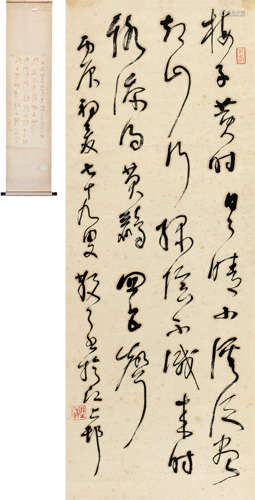 梅子黄时日日晴小溪泛尽
却山行绿阴不减来时
路添得黄鹂四五声
丙辰初夏七十九叟散之书於江上邨